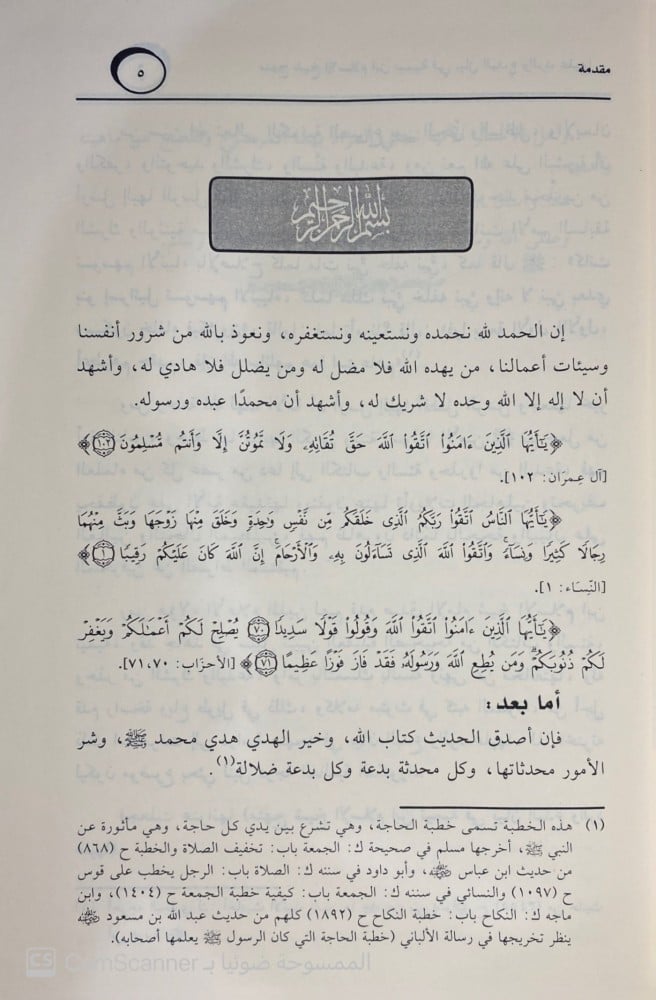 مقدمة
٥
بسم الله الرحمن الرحيم
إن الحمد لله نحمده ونستعينه ونستغفره، ونعوذ بالله من شرور أنفسنا
وسيئات أعمالنا، من يهده الله فلا مضل له ومن يضلل فلا هادي له، وأشهد
أن لا إله إلا الله وحده لا شريك له، وأشهد أن محمدًا عبده ورسوله.
﴿يَٰٓأَيُّهَا ٱلَّذِينَ ءَامَنُوا۟ ٱتَّقُوا۟ ٱللَّهَ حَقَّ تُقَاتِهِۦ وَلَا تَمُوتُنَّ إِلَّا وَأَنتُم مُّسْلِمُونَ ١٠٢﴾
[آل عِمرَان: ١٠٢].
﴿يَٰٓأَيُّهَا ٱلنَّاسُ ٱتَّقُوا۟ رَبَّكُمُ ٱلَّذِى خَلَقَكُم مِّن نَّفْسٍ وَٰحِدَةٍ وَخَلَقَ مِنْهَا زَوْجَهَا وَبَثَّ مِنْهُمَا
رِجَالًا كَثِيرًا وَنِسَآءً ۚ وَٱتَّقُوا۟ ٱللَّهَ ٱلَّذِى تَسَآءَلُونَ بِهِۦ وَٱلْأَرْحَامَ ۚ إِنَّ ٱللَّهَ كَانَ عَلَيْكُمْ رَقِيبًا ١﴾
[النِّسَاء: ١].
﴿يَٰٓأَيُّهَا ٱلَّذِينَ ءَامَنُوا۟ ٱتَّقُوا۟ ٱللَّهَ وَقُولُوا۟ قَوْلًا سَدِيدًا ٧٠ يُصْلِحْ لَكُمْ أَعْمَٰلَكُمْ وَيَغْفِرْ
لَكُمْ ذُنُوبَكُمْ ۗ وَمَن يُطِعِ ٱللَّهَ وَرَسُولَهُۥ فَقَدْ فَازَ فَوْزًا عَظِيمًا ٧١﴾ [الأحزَاب: ٧١،٧٠].
أما بعد:
فإن أصدق الحديث كتاب الله، وخير الهدي هدي محمد ﷺ، وشر
الأمور محدثاتها، وكل محدثة بدعة وكل بدعة ضلالة(١).
(١) هذه الخطبة تسمى خطبة الحاجة، وهي تشرع بين يدي كل حاجة، وهي مأثورة عن
النبي ﷺ، أخرجها مسلم في صحيحة ك: الجمعة باب: تخفيف الصلاة والخطبة ح (٨٦٨)
من حديث ابن عباس رضي الله عنه، وأبو داود في سننه ك: الصلاة باب: الرجل يخطب على قوس
ح (١٠٩٧) والنسائي في سننه ك: الجمعة باب: كيفية خطبة الجمعة ح (١٤٠٤)، وابن
ماجه ك: النكاح باب: خطبة النكاح ح (١٨٩٢) كلهم من حديث عبد الله بن مسعود رضي الله عنه
ينظر تخريجها في رسالة الألباني (خطبة الحاجة التي كان الرسول ﷺ يعلمها أصحابه).
CS الممسوحة ضوئيا بـ CamScanner